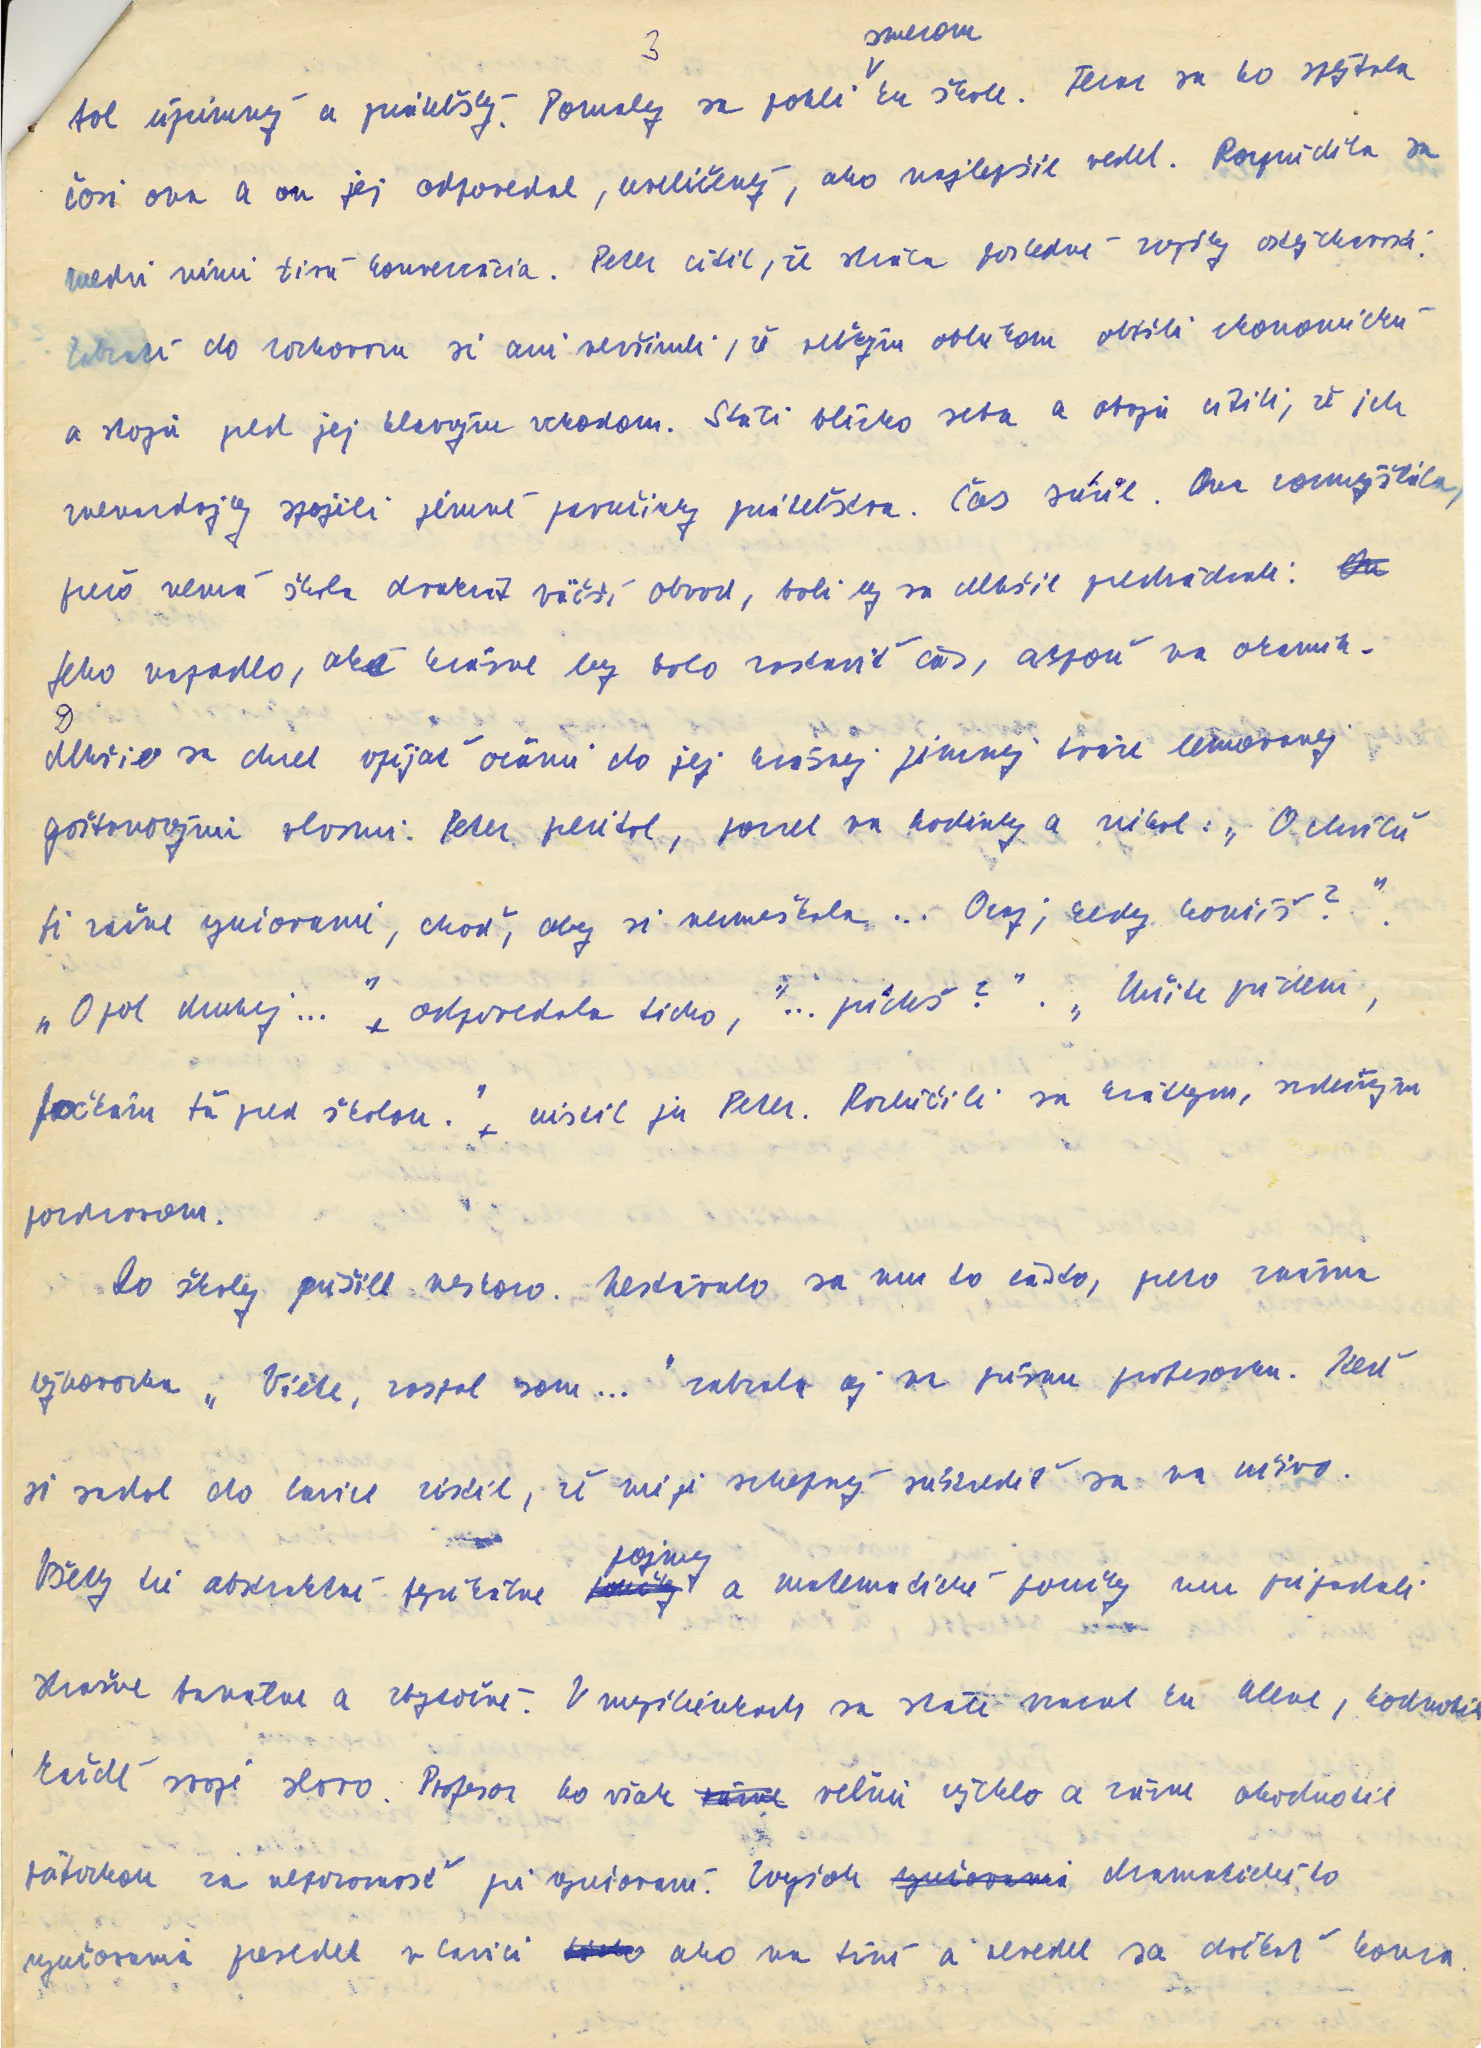 3
smerom
bol úprimný a priateľský. Pomaly sa pohli ku škole. Teraz sa ho spýtala
čosi ona a on jej odpovedal, uveličený, ako najlepšie vedel. Rozprúdila sa
medzi nimi živá konverzácia. Peter cítil, že stráca posledné zvyšky ostýchavosti.
Zabraní do rozhovoru si ani nevšimli, že veľkým oblúkom obišli ekonomickú
a stoja pred jej hlavným vchodom. Stáli blízko seba a obaja cítili, že ich
nenávidajky spojili jemné pavučinky priateľstva. Čas súril. Ona rozmýšľala,
prečo nemá škola dvakrát väčší obvod, boli by sa dlhšie prechádzali. On
Jeho napadlo, aké krásne by bolo zastaviť čas, aspoň na okamih.
Dlhšie sa chcel vpíjať očami do jej krásnej jemnej tváre lemovanej
gaštanovými vlasmi. Peter precitol, pozrel na hodinky a riekol: „ O chvíľu
ti začne vyučovanie, choď, aby si nemeškala ... Ozaj, kedy končíš? ".
„ O pol druhej ... ", odpovedala ticho, "... prídeš? ". „ Určite prídem,
počkám ťa pred školou. ", uistil ju Peter. Rozlúčili sa krátkym, srdečným
pozdravom.
Do školy prišiel neskoro. Nestávalo sa mu to často, preto známa
výhovorka „ Viete, zaspal som ... " zabrala aj na prísnu profesorku. Keď
si sadol do lavice zistil, že nie je schopný sústrediť sa na učivo.
pojmy
Všetky tie abstraktné fyzikálne poučky a matematické poučky mu pripadali
strašne banálne a zbytočné. V myšlienkach sa stále vracal ku Alene, hodnotil
každé svoje slovo. Profesor ho však rázne veľmi rýchlo a rázne ohodnotil
päťorkou za nepozornosť pri vyučovaní. Zvyšok vyučovania dramatického
vyučovania presedel v lavici ticho ako na tŕní a nevedel sa dočkať konca.